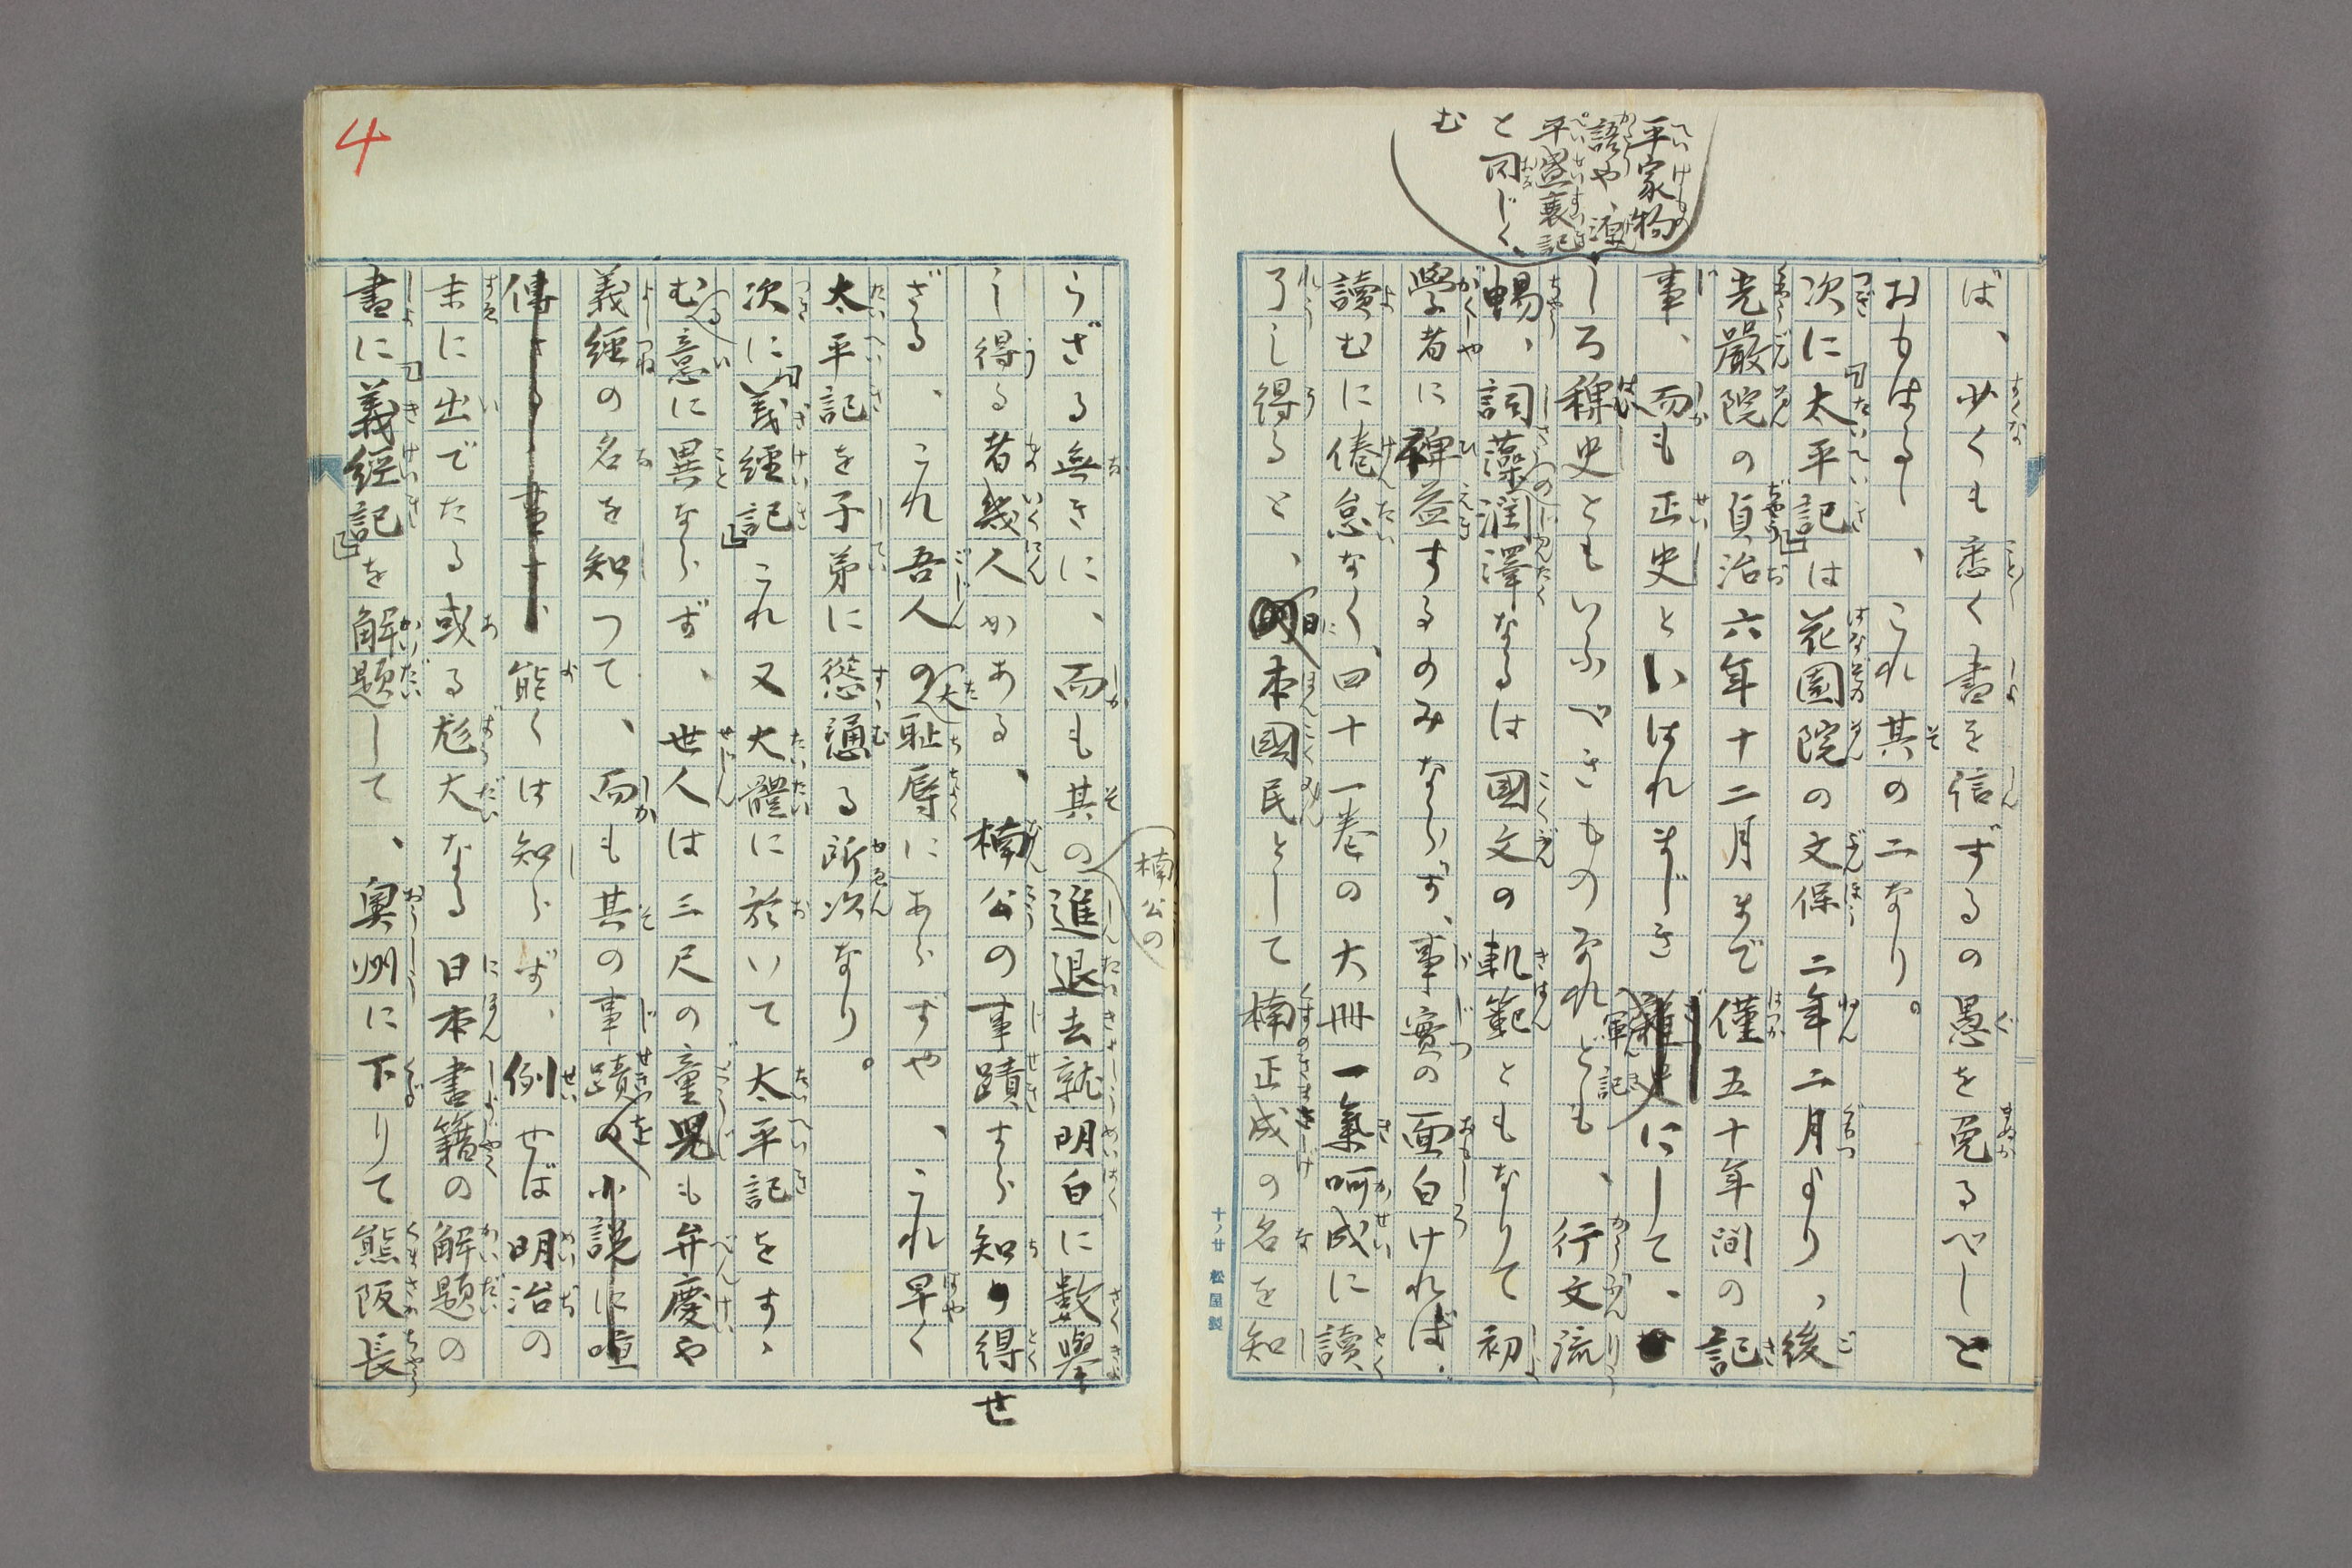 平家物
語や、源
平盛衰記
と同じく、
む
ば、少くも悉く書を信ずるの愚を免るべしと
おもはるゝ、これ其の二なり。
次に『太平記』は花園院の文保二年二月より、後
光嚴院の貞治六年十二月まで僅五十年間の記
事、而も正史といはれまじき軍記にして、
しろ稗史ともいふべきものなれども、行文流
暢、詞藻潤澤なるは國文の軌範ともなりて初
學者に裨益するのみならず、事實の面白ければ、
讀むに倦怠なく、四十一卷の大冊一氣呵成に讀
了し得ると、日本國民として楠正成の名を知
十ノ廿 松屋製
らざる無きに、而も其の進退去就明白に数擧
楠公の
し得る者幾人かある、楠公の事蹟すら知り得せ
ざる、これ吾人の大恥辱にあらずや、これ早く
太平記を子弟に慫慂する所以なり。
次に『義經記』これ又大體に於いて太平記をすゝ
むる意に異ならず、世人は三尺の童児も弁慶や
義經の名を知つて、而も其の事蹟を小説に
能くは知らず、例せば明治の
末に出でたる或る尨大なる日本書籍の解題の
書に『義經記』を解題して、奥州に下りて熊阪長
4